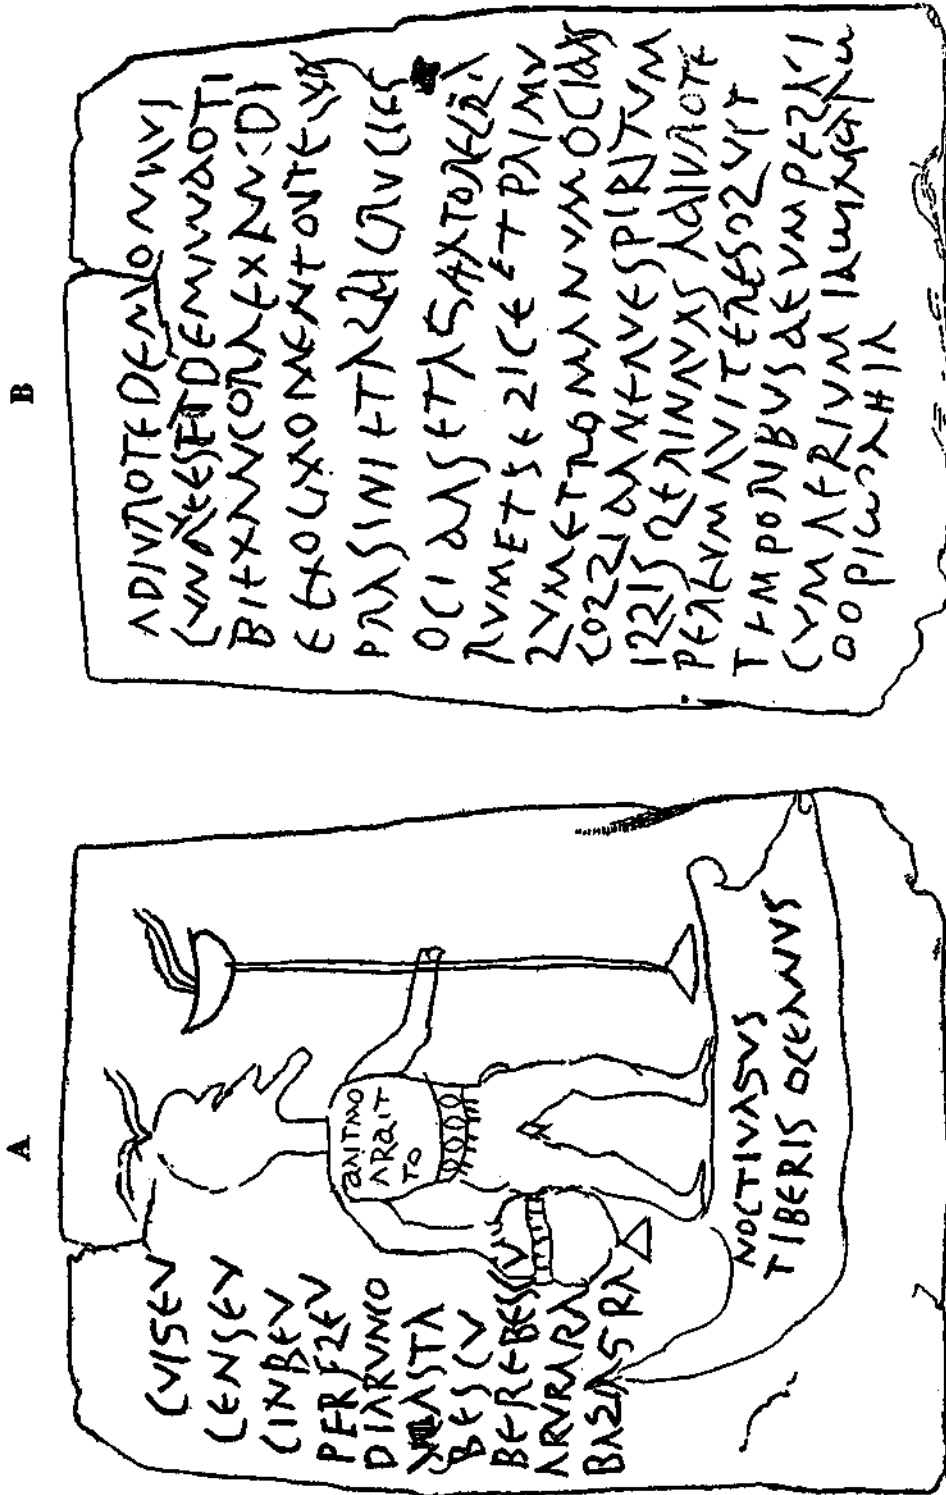 A
CVIGEV
CENSEV
CINBEV
PERFLEV
DIARVNCO
DEASTA
BESCV
BEREBESCV
ARVRARA
BAZAGRA
ANTMO
ARAIT
TO
NOCTIVAGVS
TIBERIS OCEANVS
B
ADIVRO TE DEMON QVI
CVNQVE ES ET DEMANDO TI
BI EX ANC ORA EX ANC DI
E EX OC MOMENTO VT EQVOS
PRASINI ET ALBI CRVCIES
OCIDAS ET AGITATORE CLA
RVM ET FELICE ET PRIMV
LVM ET ROMANVM OCIDAS
COLLIDA NEQVE SPIRITVM
ILLIS LERINQVAS ADIVRO TE
PER EVM QVI TE RESOLVIT
TEMPORIBVS DEVM PELAGI
CVM AERIVM